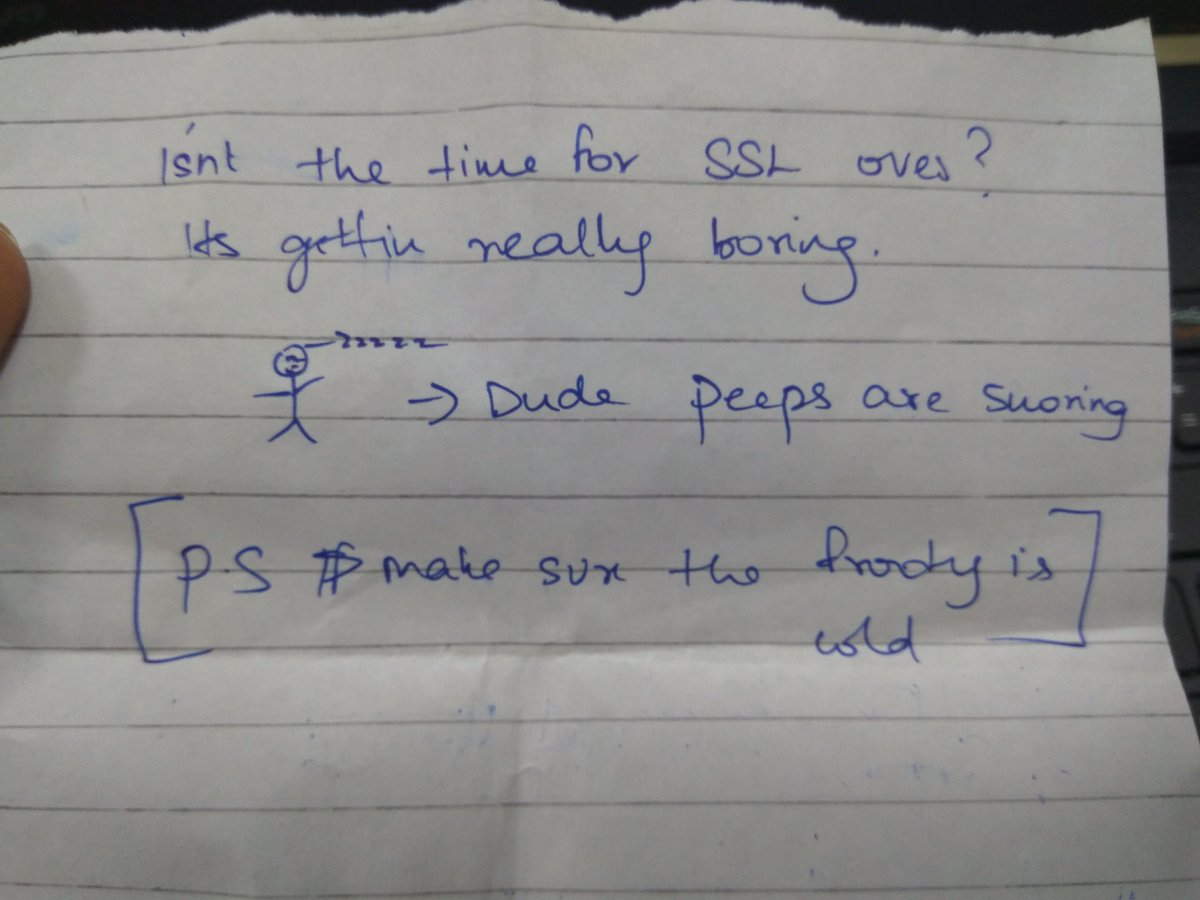 Isn't the time for SSL over?
Its gettin really boring.
zzzzz
→ Dude peeps are snoring
[P.S make sure the frooty is
cold]